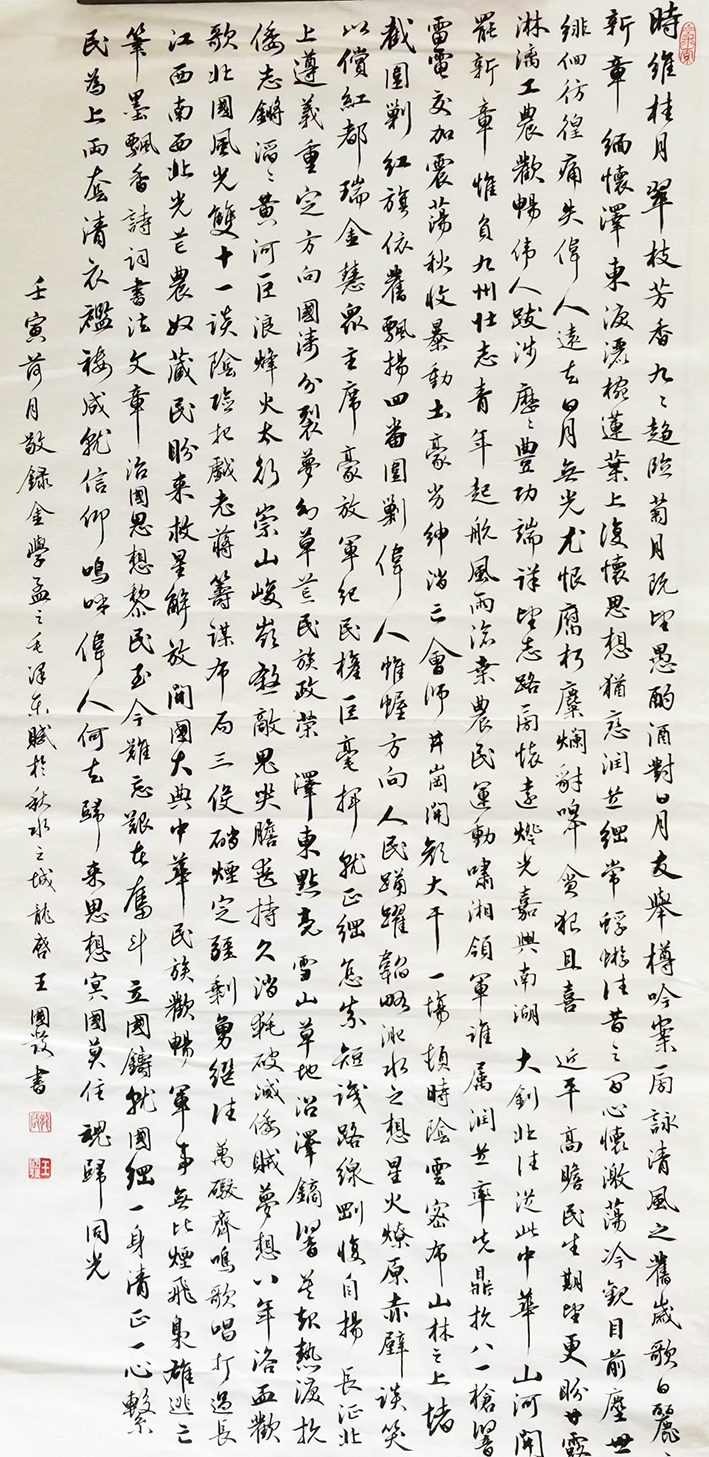 時維桂月翠枝芳香九々趋临菊月既望愚酌酒對日月友舉樽吟案间詠清風之舊歲歌白麗々
新章緬懷澤東液灑梭蓮葉上復懷思想猶慈润芝細常蜉蝣往昔之间心懷激蕩冷觀目前塵世
徘徊彷徨痛失偉人遠去日月無光尤恨腐朽糜爛豺嗥貪犯且喜近平高瞻民生期望更盼甘露
淋漓工農歡暢伟人跋涉歷々豐功端详望志路间懷遠燈光嘉興南湖大釗北往從此中華山河開
罷新章惟負九州壮志青年起航風雨滄桑農民運動嘯湘領軍谁属润芝率先鼎抗八一槍響
雷電交加震荡秋收暴動土豪劣绅消亡會师井崗開新大干一場頓時陰雲密布山林之上堵
截圍剿红旗依舊飄揚四番圍剿偉人帷幄方向人民踊躍韜略淝水之想星火燎原赤壁談笑
以償紅都瑞金慧眾主席豪放軍紀民擔巨毫揮就正綱怎奈短識路線剛愎自揚長征北
上遵義重定方向國濤分裂夢幻草芒民族政荣澤東點亮雪山草地沿澤鏑響並起熱液抗
倭志鏘滔々黃河巨浪烽火太行崇山峻嶺教敵鬼哭膽喪持久消耗破滅倭賊夢想八年浴血歡
歌北國風光雙十一談陰险把戲老蔣籌謀布局三役硝煙定疆剩勇繼往萬礮齊鳴歌唱打過長
江西南西北光芒農奴藏民盼来救星解放開國大典中華民族歡暢軍事無比煙飛梟雄逃亡
筆墨飄香詩词書法文章治國思想黎民至今難忘艱苦奮斗立國鑄就國細一身清正一心繫
民為上兩套清衣襤褛成就信仰鳴呼偉人何去歸来思想冥國莫住魂歸同光
壬寅荷月敬録金學孟之毛泽东赋於秋水之城龍啓王國發書